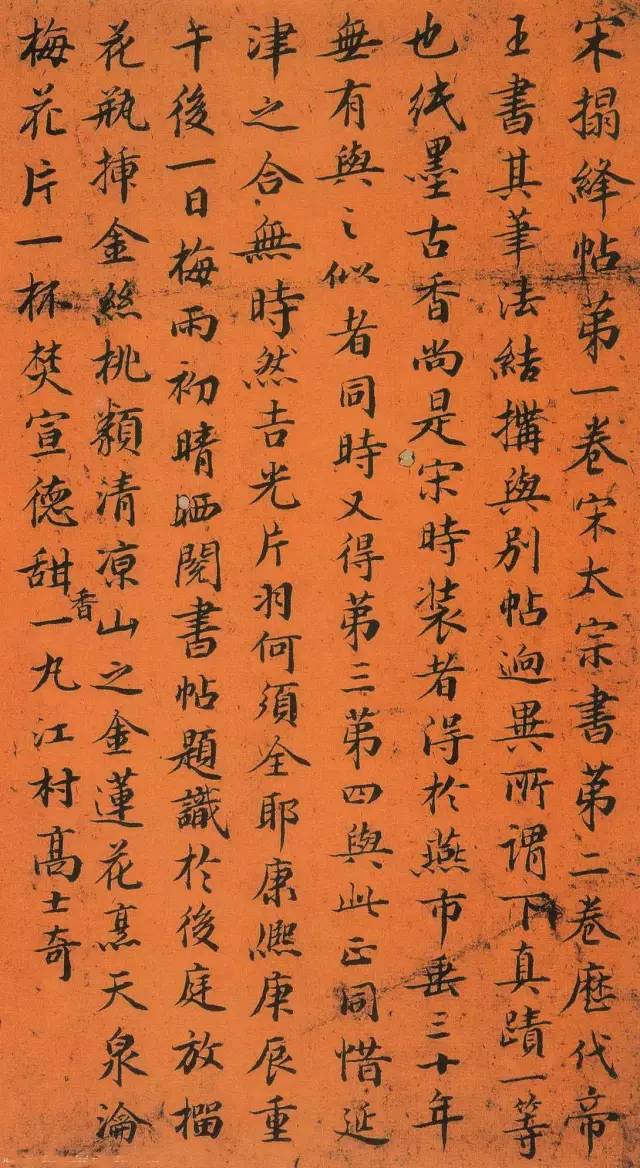 宋搨絳帖第一卷宋太宗書第二卷歷代帝
王書其筆法結搆與別帖逈異所謂下真蹟一等
也紙墨古香尚是宋時装者得於燕市垂三十年
無有與之似者同時又得第三第四與此正同惜延
津之合無時然吉光片羽何須全耶康熙庚辰重
午後一日梅雨初晴晒閱書帖題識於後庭放榴
花瓶挿金絲桃纇清凉山之金蓮花烹天泉瀹
梅花片一杯焚宣德甜香一丸江村髙士奇